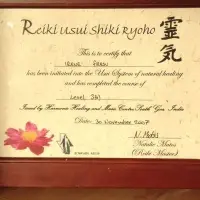 Reiki Usui Shiki Ryoho
靈氣
This is to certify that
has been initiated into the Usui System of natural healing
and has completed the course of
Level
Issued by Harmonic Healing and Music Centre, South Goa, India
Date: 30 November 2007
N. Mathis
Natalie Mathis
(Reiki Master)